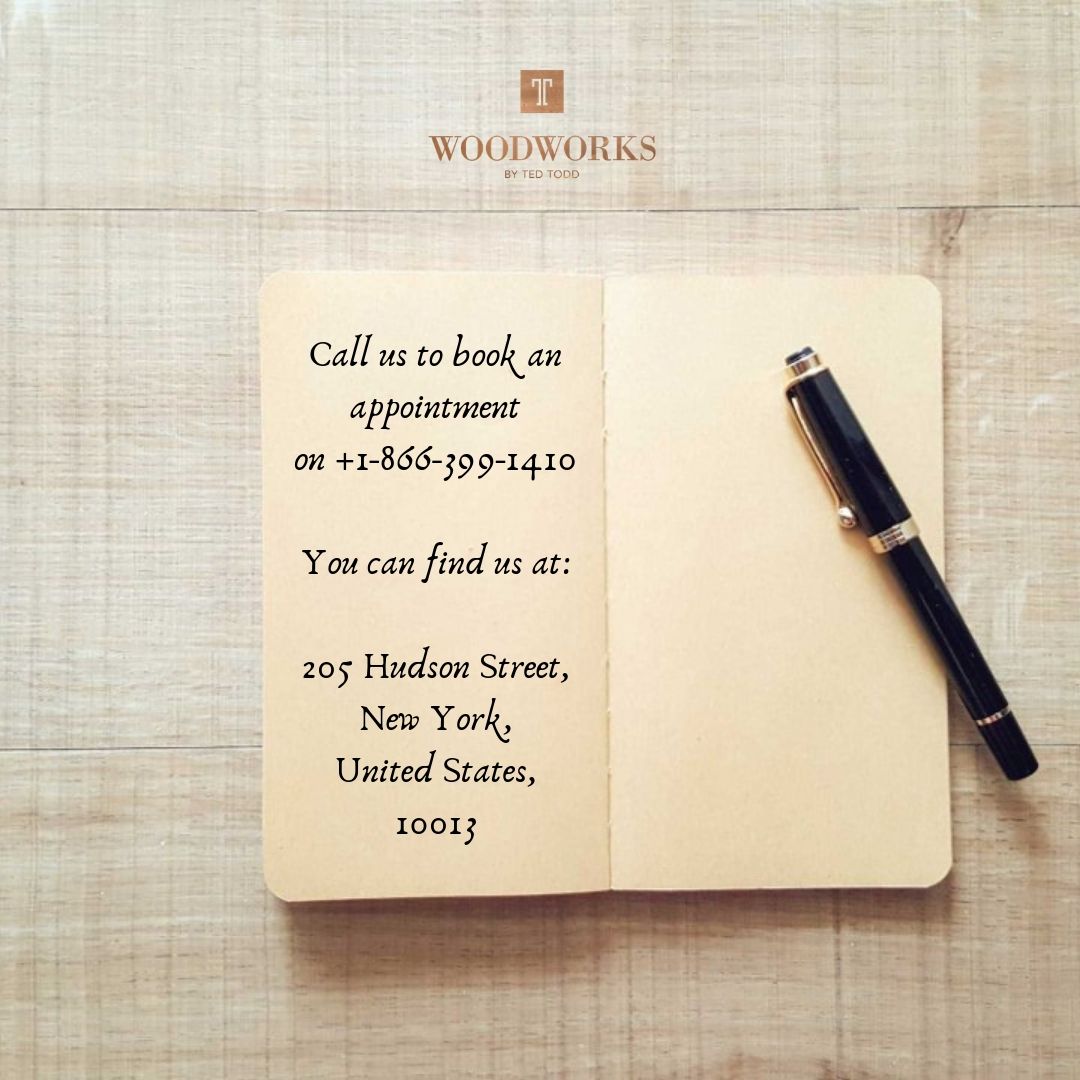 WOODWORKS
BY TED TODD
Call us to book an
appointment
on +1-866-399-1410
You can find us at:
205 Hudson Street,
New York,
United States,
10013